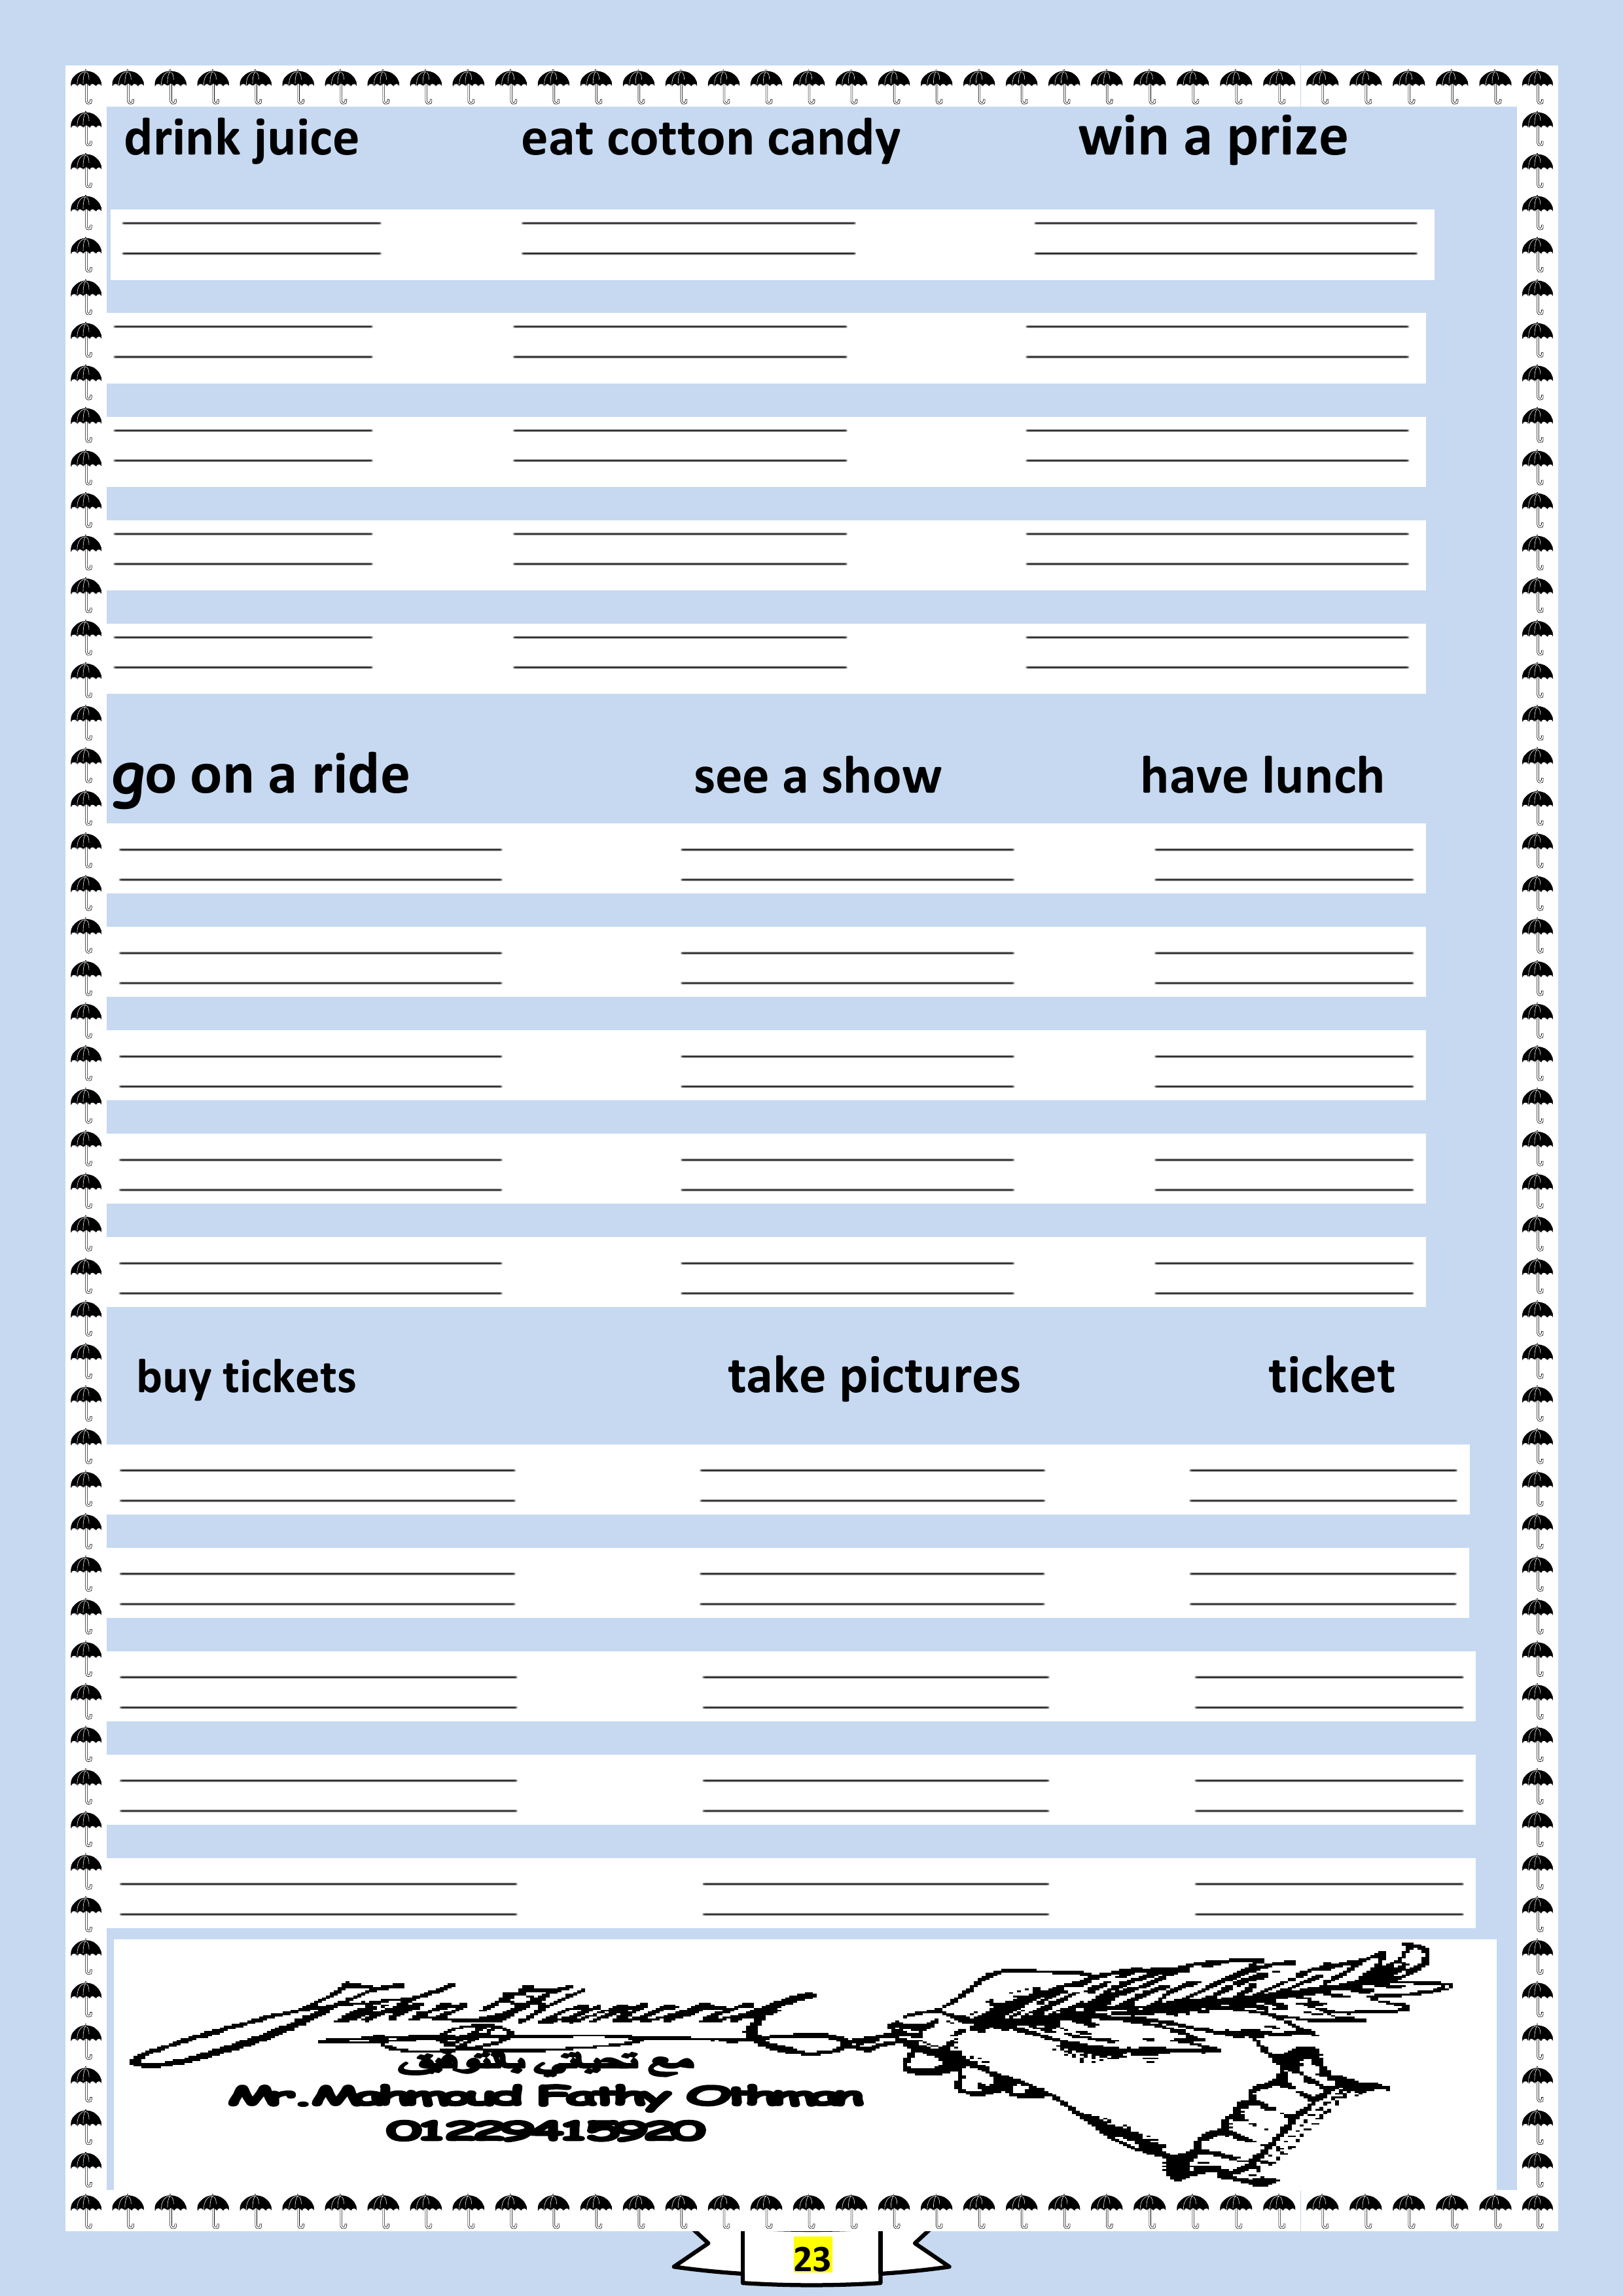 drink juice eat cotton candy win a prize
go on a ride see a show have lunch
buy tickets take pictures ticket
مع تحياتي بالتوفيق
Mr.Mahmoud Fathy Othman
01229415920
23